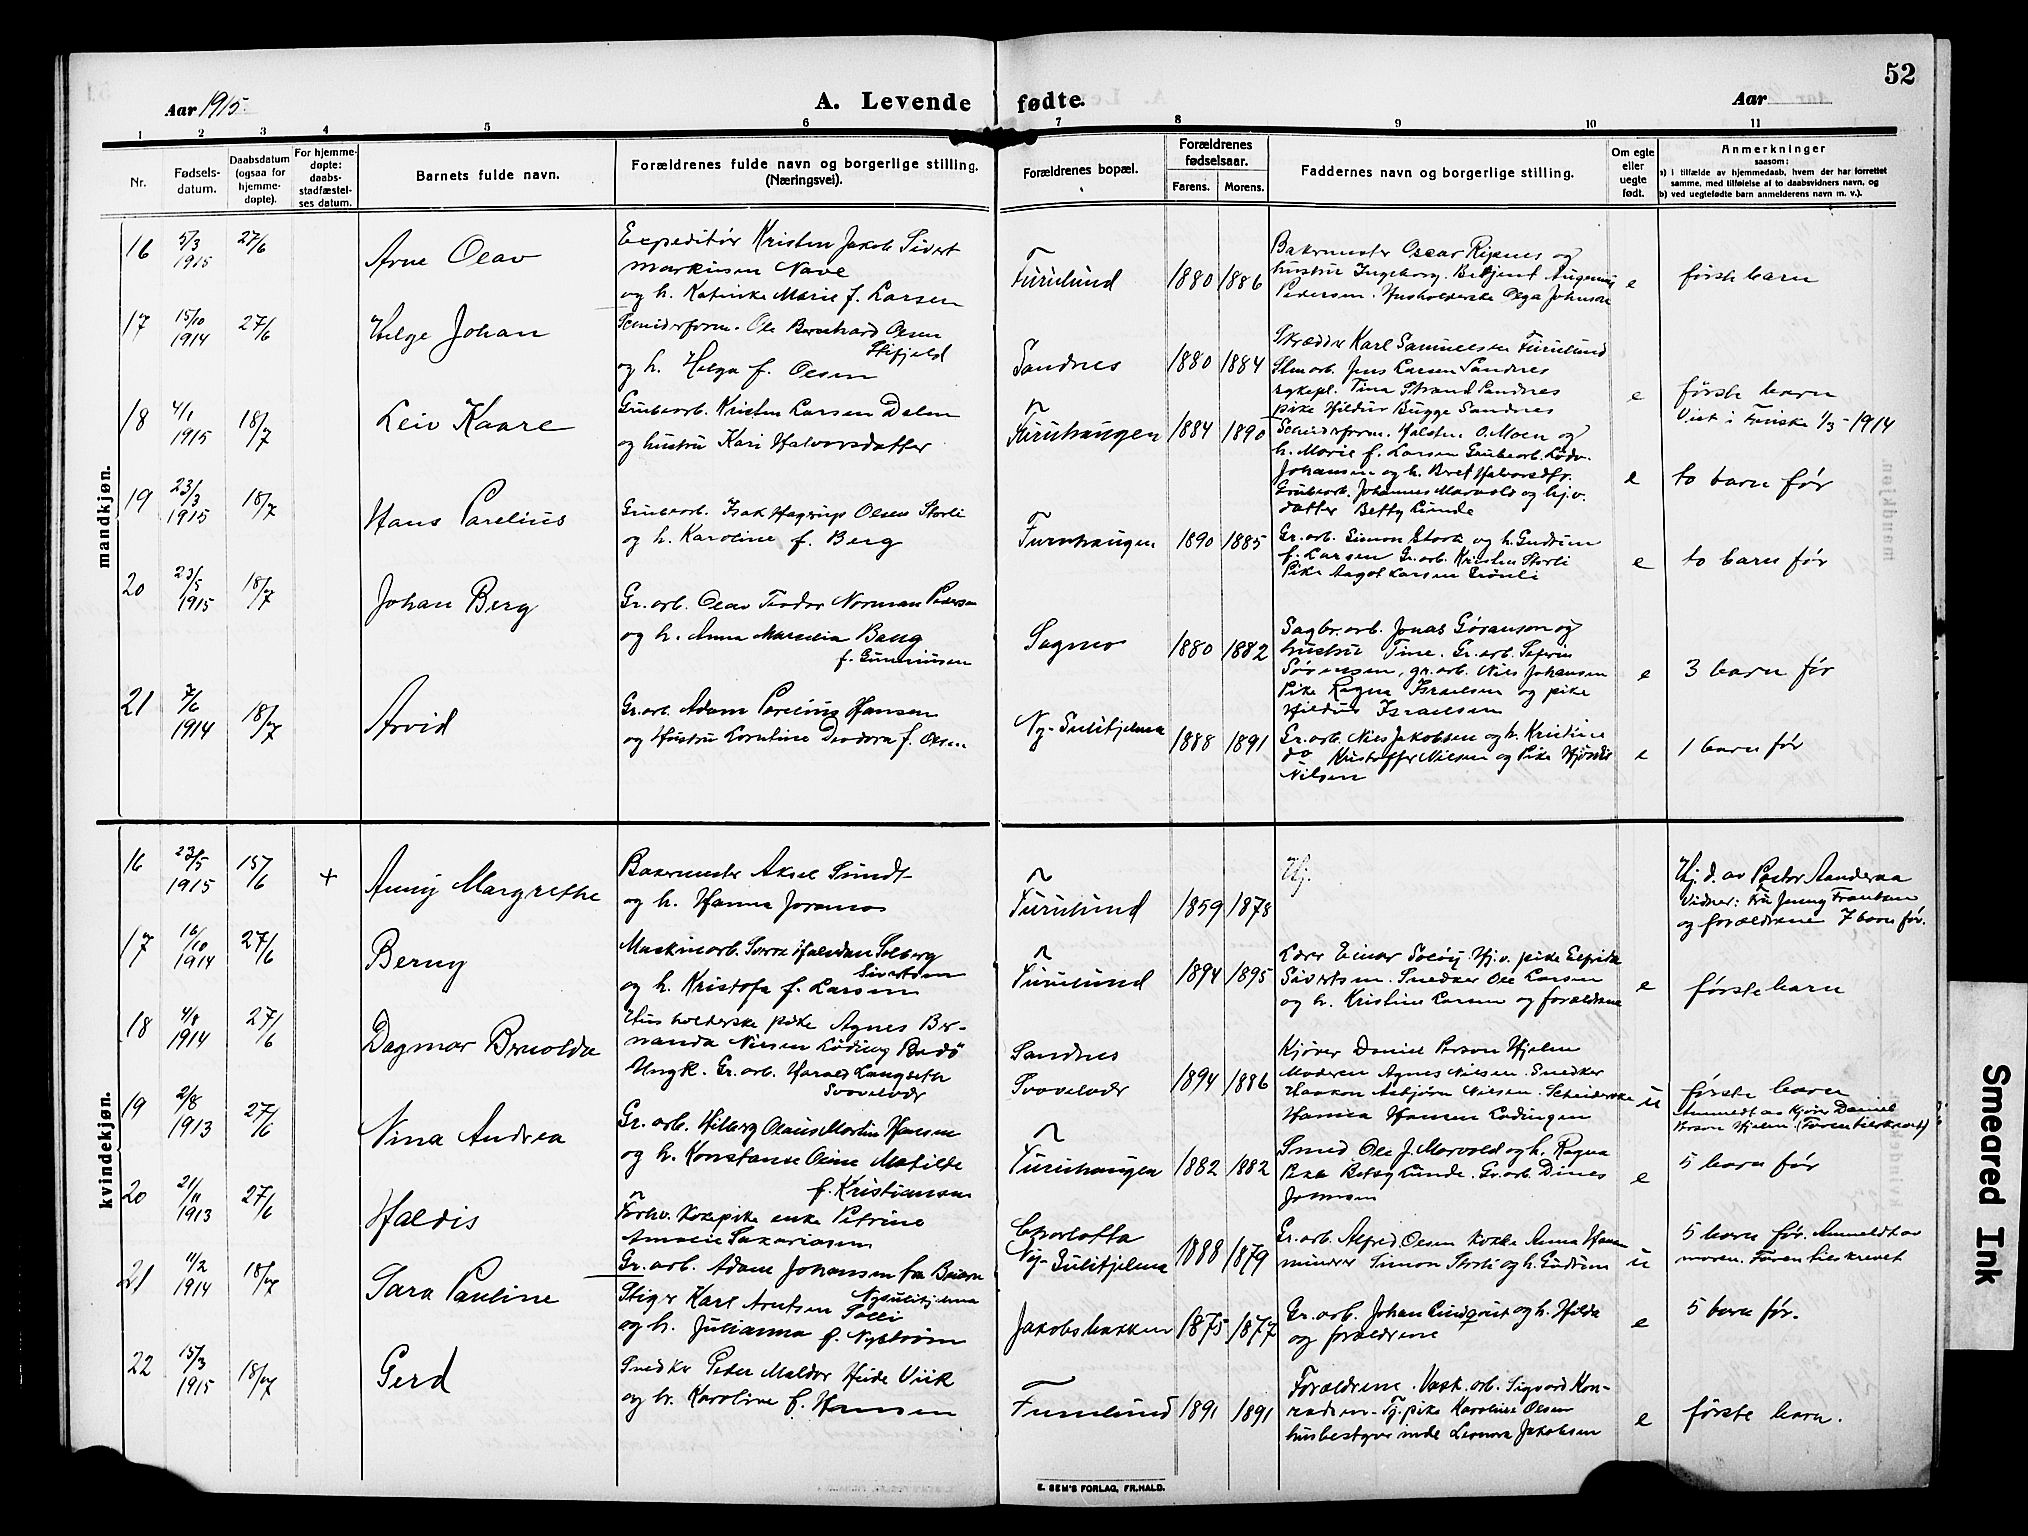 52
Aar 1915.
A. Levende fødte.
Aar
1 2 3 4 5 6 7 8 9 10 11
Nr.
Fødsels-
datum.
Daabsdatum
(ogsaa for
hjemme-
døpte).
For hjemme-
døpte:
daabs-
stadfæstel-
ses datum.
Barnets fulde navn.
Forældrenes fulde navn og borgerlige stilling.
(Næringsvei).
Forældrenes bopæl.
Forældrenes
fødselsaar.
Farens. Morens.
Faddernes navn og borgerlige stilling.
Om egte
eller
uegte
født.
Anmerkninger
saasom:
a) i tilfælde av hjemmedaab, hvem der har forrettet
samme, med tilføielse af to daabsvidners navn, og
b) ved uegtefødte barn anmelderens navn m. v.).
mandkjøn.
16 5/3 1915 27/6
Arne Olav
Expeditør Kristen Jakob Sivert
Markusen Nave
og h. Katinka Marie f. Larsen
Furulund 1880 1886
Bakermester Oscar Ripnes og
hustru Ingeborg. Betjent
Pedersen. Husholderske Olga Johnson
e første barn
17 15/10 1914 27/6
Helge Johan
Ole Bernhard Olsen
og h. Helga f. Olsen
Sandnes 1880 1884
Skrædder Karl Samuelsen Furulund
Jens Larsen Sandnes
Tina Strand Sandnes
pike Hildur Bugge Sandnes
e første barn
Viet i Finske 1/3 - 1914
18 4/1 1915 18/7
Leiv Kaare
Grubearb. Kristen Larsen Dalen
og hustru Kari Halvorsdatter
Furuhaugen 1884 1890
O. Moen og
h. Marie f. Larsen Grubearb. Lødv.
Johansen og h. Bret Halvorsdtr.
Grubearb. Johannes Marvold og hj.v.
datter Betty Lunde
e to barn før
19 23/3 1915 18/7
Hans Parelius
Grubearb. Isak Hagerup Olsen Storli
og h. Karoline f. Berg
Furuhaugen 1890 1885
Gr. arb. Simon Storli og h. Gudrun
f. Larsen Gr. arb. Kristen Storli
Pike Aagot Larsen Grønli
e to barn før
20 23/5 1915 18/7
Johan Berg
Gr. arb. Olav Teodor Norman Pedersen
og h. Anna Marselia Bang
f. Gunniusen
Sagmo 1880 1882
Sagbr. arb. Jonas Gøranson og
hustru Tine. Gr. arb. Severin
Sørensen, gr. arb. Niels Johansen
Pike Ragna Israelsen og pike
Hildur Israelsen
e 3 barn før
21 7/6 1914 18/7
Arvid
Gr. arb. Adam Parelius Hansen
og Hustru Lorntine Teodora f. Olsen
Ny-Sulitjelma 1888 1891
Gr. arb. Niels Jakobsen og h. Kristine
do Kristoffer Nilsen og Pike Hjørdis
Nilsen
e 1 barn før
kvindekjøn.
16 23/5 1915 15/6 +
Anny Margrethe
Bakermester Aksel Sundt
og h. Hanna Joramo
Furulund 1859 1878
Hj.
Hj. d. av Pastor Aanderaa
Vidner: Fru Jenny Frantsen
og forældrene 7 barn før.
17 16/10 1914 27/6
Berny
Maskinarb. Sverre Halvdan Solberg
Sivertsen
og h. Kristofa f. Larsen
Furulund 1894 1895
Lærer Einar Solöy Hj.v. pike Elfrida
Sivertsen. Snedker Ole Larsen
og h. Kristine Larsen og forældrene
e første barn
18 4/8 1914 27/6
Dagmar Bernolda
Husholderske pike Agnes Ber-
nanda Nilsen Löding Bodö
Ungk. Gr. arb. Harald Langseth
Svovelvær
Sandnes
Svovelvær 1894 1886
Kjører Daniel Person Hjelm
Moderen Agnes Nilsen. Snedker
Haakon Asbjörn Nilsen.
Hanna Hansen Lødingen
u første barn
Anmeldt av Kjører Daniel
Person Hjelm (Faren tilskrevet)
19 2/8 1913 27/6
Nina Andrea
Gr. arb. Hilberg Olaus Martin Hansen
og h. Konstanse Oline Matilde
f. Kristiansen
Furuhaugen 1882 1882
Smed Ole J. Marvold og h. Ragna
Pike Betsy Lunde. Gr. arb. Dines
Joramsen
e 5 barn før
20 21/11 1913 27/6
Haldis
Forhv. Kokepike enke Petrine
Amalie Sakariasen
Gr. arb. Adam Johansen fra Beiarn
Nysulitjelma
Charlotta
Ny-Sulitjelma 1888 1879
Gr. arb. Alfred Olsen Kokke Anna Hansen
minerer Simon Storli og h. Gudrun
u 5 barn før. Anmeldt av
moren. Faren tilskrevet
21 11/2 1914 18/7
Sara Pauline
Stiger Karl Arntsen Solli
og h. Julianna f. Nystrøm
Jakobsbakken 1875 1877
Gr. arb. Johan Lindqvist og h. Hilda
og forældrene
e 5 barn før.
22 15/3 1915 18/7
Gerd
Snedker Peder Meldor Heide Viik
og h. Karoline f. Hansen
Furulund 1891 1891
Forældrene. Vask. arb. Sigvard Kon-
radsen. Tj. pike Karoline Olsen
husbestyrerinde Leonora Jakobsen
e første barn.
E. SEM'S FORLAG, FR.HALD.
Smeared Ink